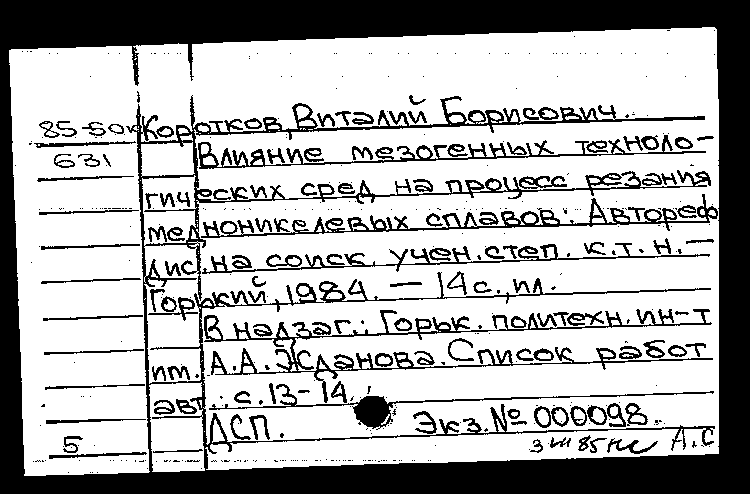 85-60к Коротков, Виталий Борисович.
631 Влияние мезогенных техноло-
гических сред на процесс резания
медноникелевых сплавов: Автореф
дис. на соиск. учен. степ. к.т.н. —
Горький, 1984. — 14 с., ил.
В надзаг.: Горьк. политехн. ин-т
им. А.А. Жданова. Список работ
авт.: с. 13-14.
ДСП. Экз. № 000098.
5 85 А.С